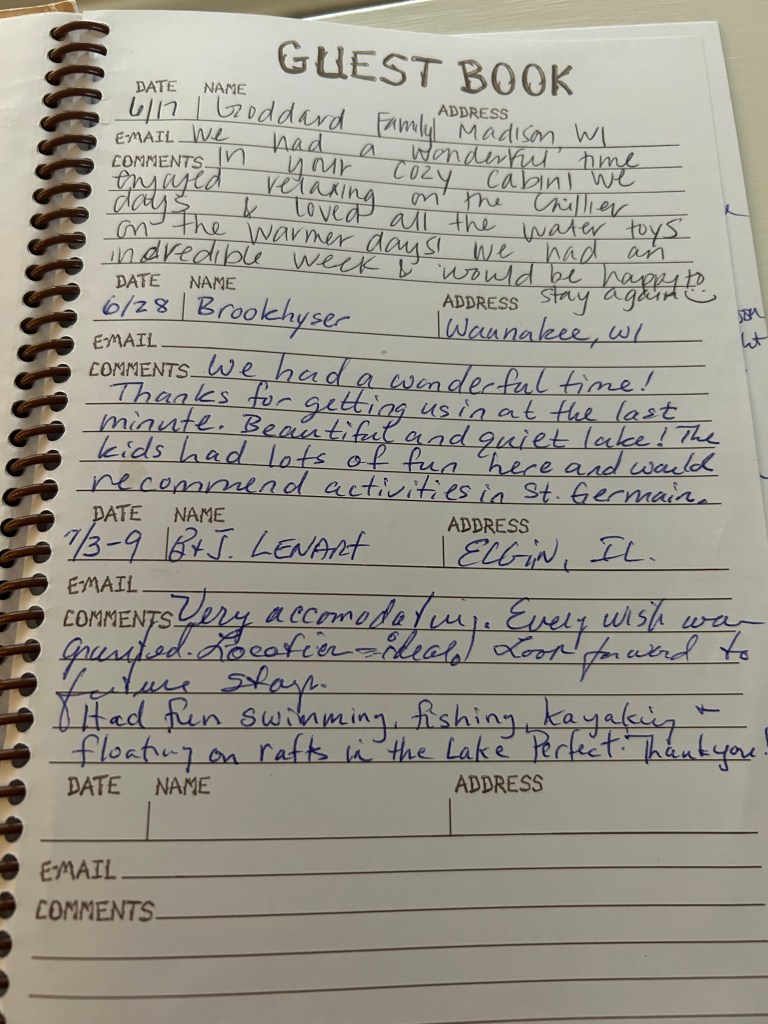 GUEST BOOK
DATE NAME ADDRESS
6/17 Goddard Family Madison WI
E-MAIL We had a wonderful time
COMMENTS in your cozy cabin! We
enjoyed relaxing on the chillier
days & loved all the water toys
on the warmer days! We had an
incredible week & would be happy to
stay again
DATE NAME ADDRESS
6/28 Brookhyser Waunakee, WI
E-MAIL
COMMENTS We had a wonderful time!
Thanks for getting us in at the last
minute. Beautiful and quiet lake! The
kids had lots of fun here and would
recommend activities in St. Germain.
DATE NAME ADDRESS
7/3-9 B+J. LENART ELGIN, IL.
E-MAIL
COMMENTS Very accomodating. Every wish was
granted. Location = ideal. Look forward to
future stays.
Had fun swimming, fishing, kayaking +
floating on rafts in the Lake Perfect. Thank you!
DATE NAME ADDRESS
E-MAIL
COMMENTS